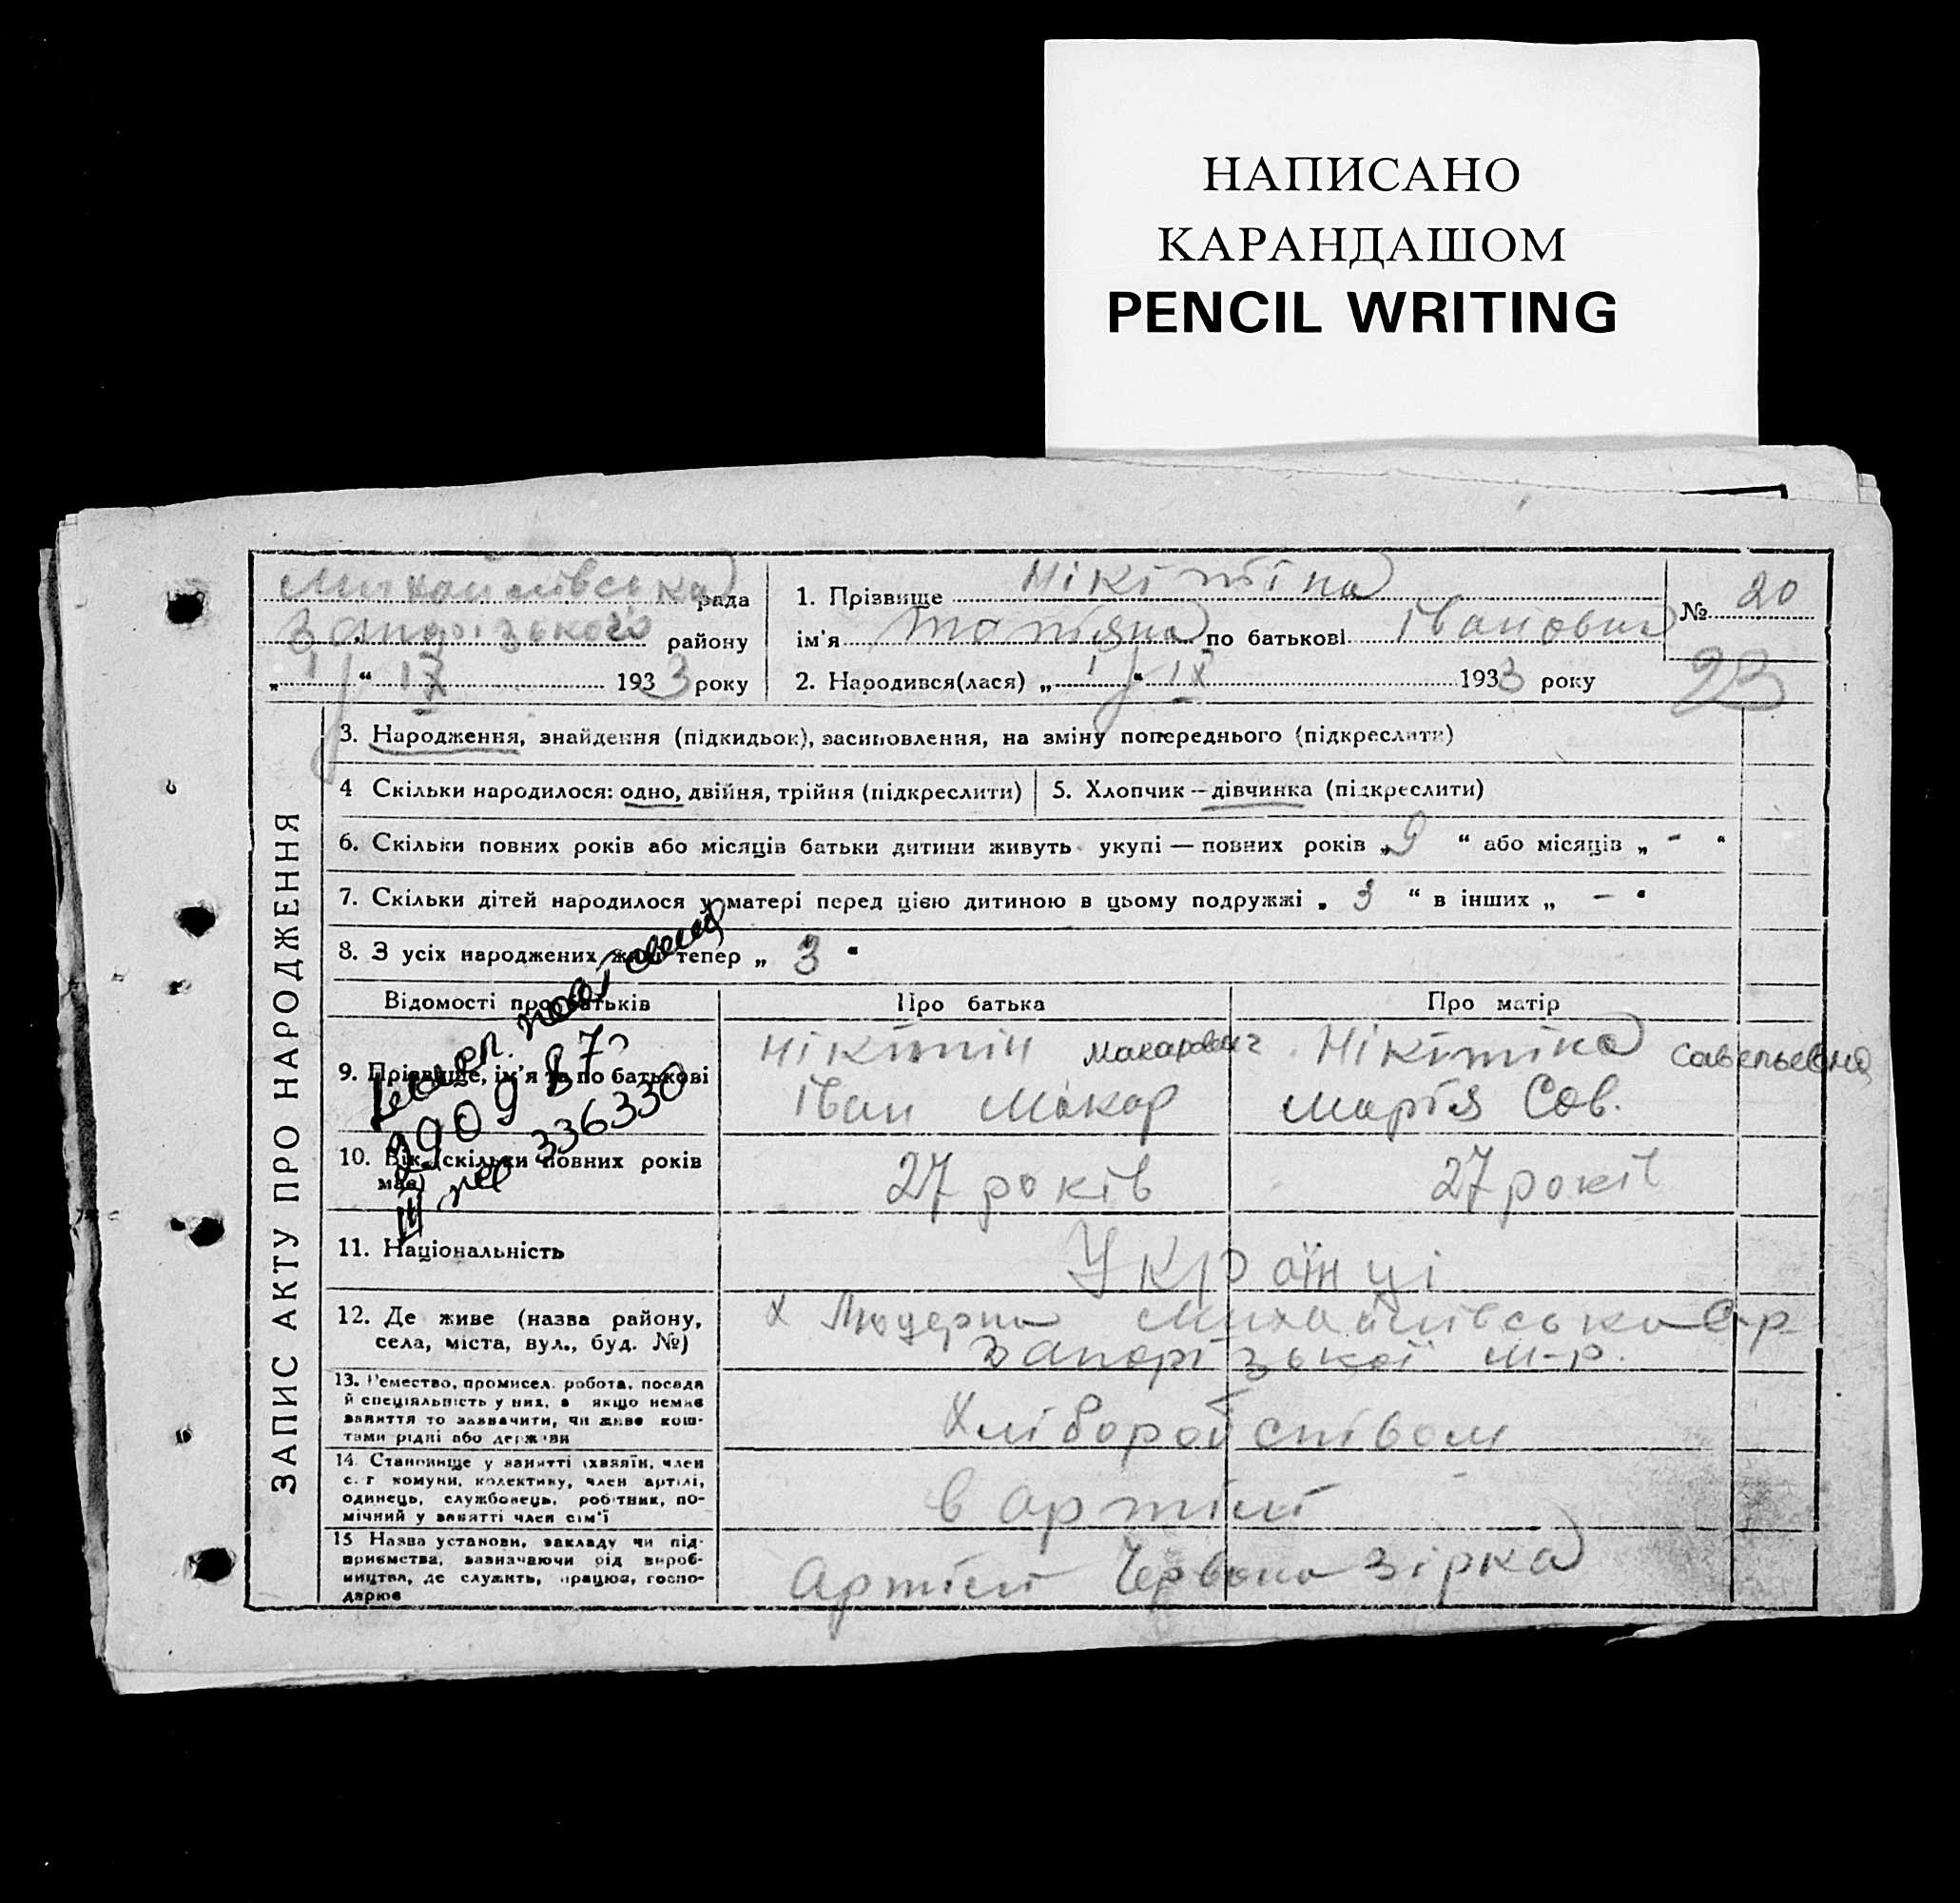 НАПИСАНО
КАРАНДАШОМ
PENCIL WRITING
Михайлівська рада
Запорізького району
„ 1 “ IX 1933 року
1. Прізвище Нікітіна
ім'я Татіяна по батькові Івановна
2. Народився(лася) „ 1 “ IX 1933 року
№ 20
23
ЗАПИС АКТУ ПРО НАРОДЖЕННЯ
3. Народження, знайдення (підкидьок), засиновлення, на зміну попереднього (підкреслити)
4 Скільки народилося: одно, двійня, трійня (підкреслити)
5. Хлопчик — дівчинка (підкреслити)
6. Скільки повних років або місяців батьки дитини живуть укупі — повних років „ 9 “ або місяців „ - “
7. Скільки дітей народилося у матері перед цією дитиною в цьому подружжі „ 3 “ в інших „ - “
8. З усіх народжених живі тепер „ 3 “
Відомості про батьків
Про батька
Про матір
9. Прізвище, ім'я та по батькові
Нікітін Макарович
Іван Макар
Нікітіна Савельевна
Марія Сав.
10. Вік (скільки повних років має)
27 років
27 років
336330
11. Національність
Українці
12. Де живе (назва району,
села, міста, вул., буд. №)
х Люцерна Михайлівська с-р
Запорізької м-р.
13. Ремество, промисел, робота, посада
й спеціяльність у них, а якщо немає
заняття то зазначити, чи живе кош-
тами рідні або держави
Хліборобством
14. Становище у занятті (хазяїн, член
с. г комуни, колективу, член артілі,
одинець, службовець, робітник, по-
мічний у занятті член сім'ї
в артілі
15 Назва установи, закладу чи під-
приємства, зазначаючи рід вироб-
ництва, де служить, працює, госпо-
дарює
Артілі Червона Зірка